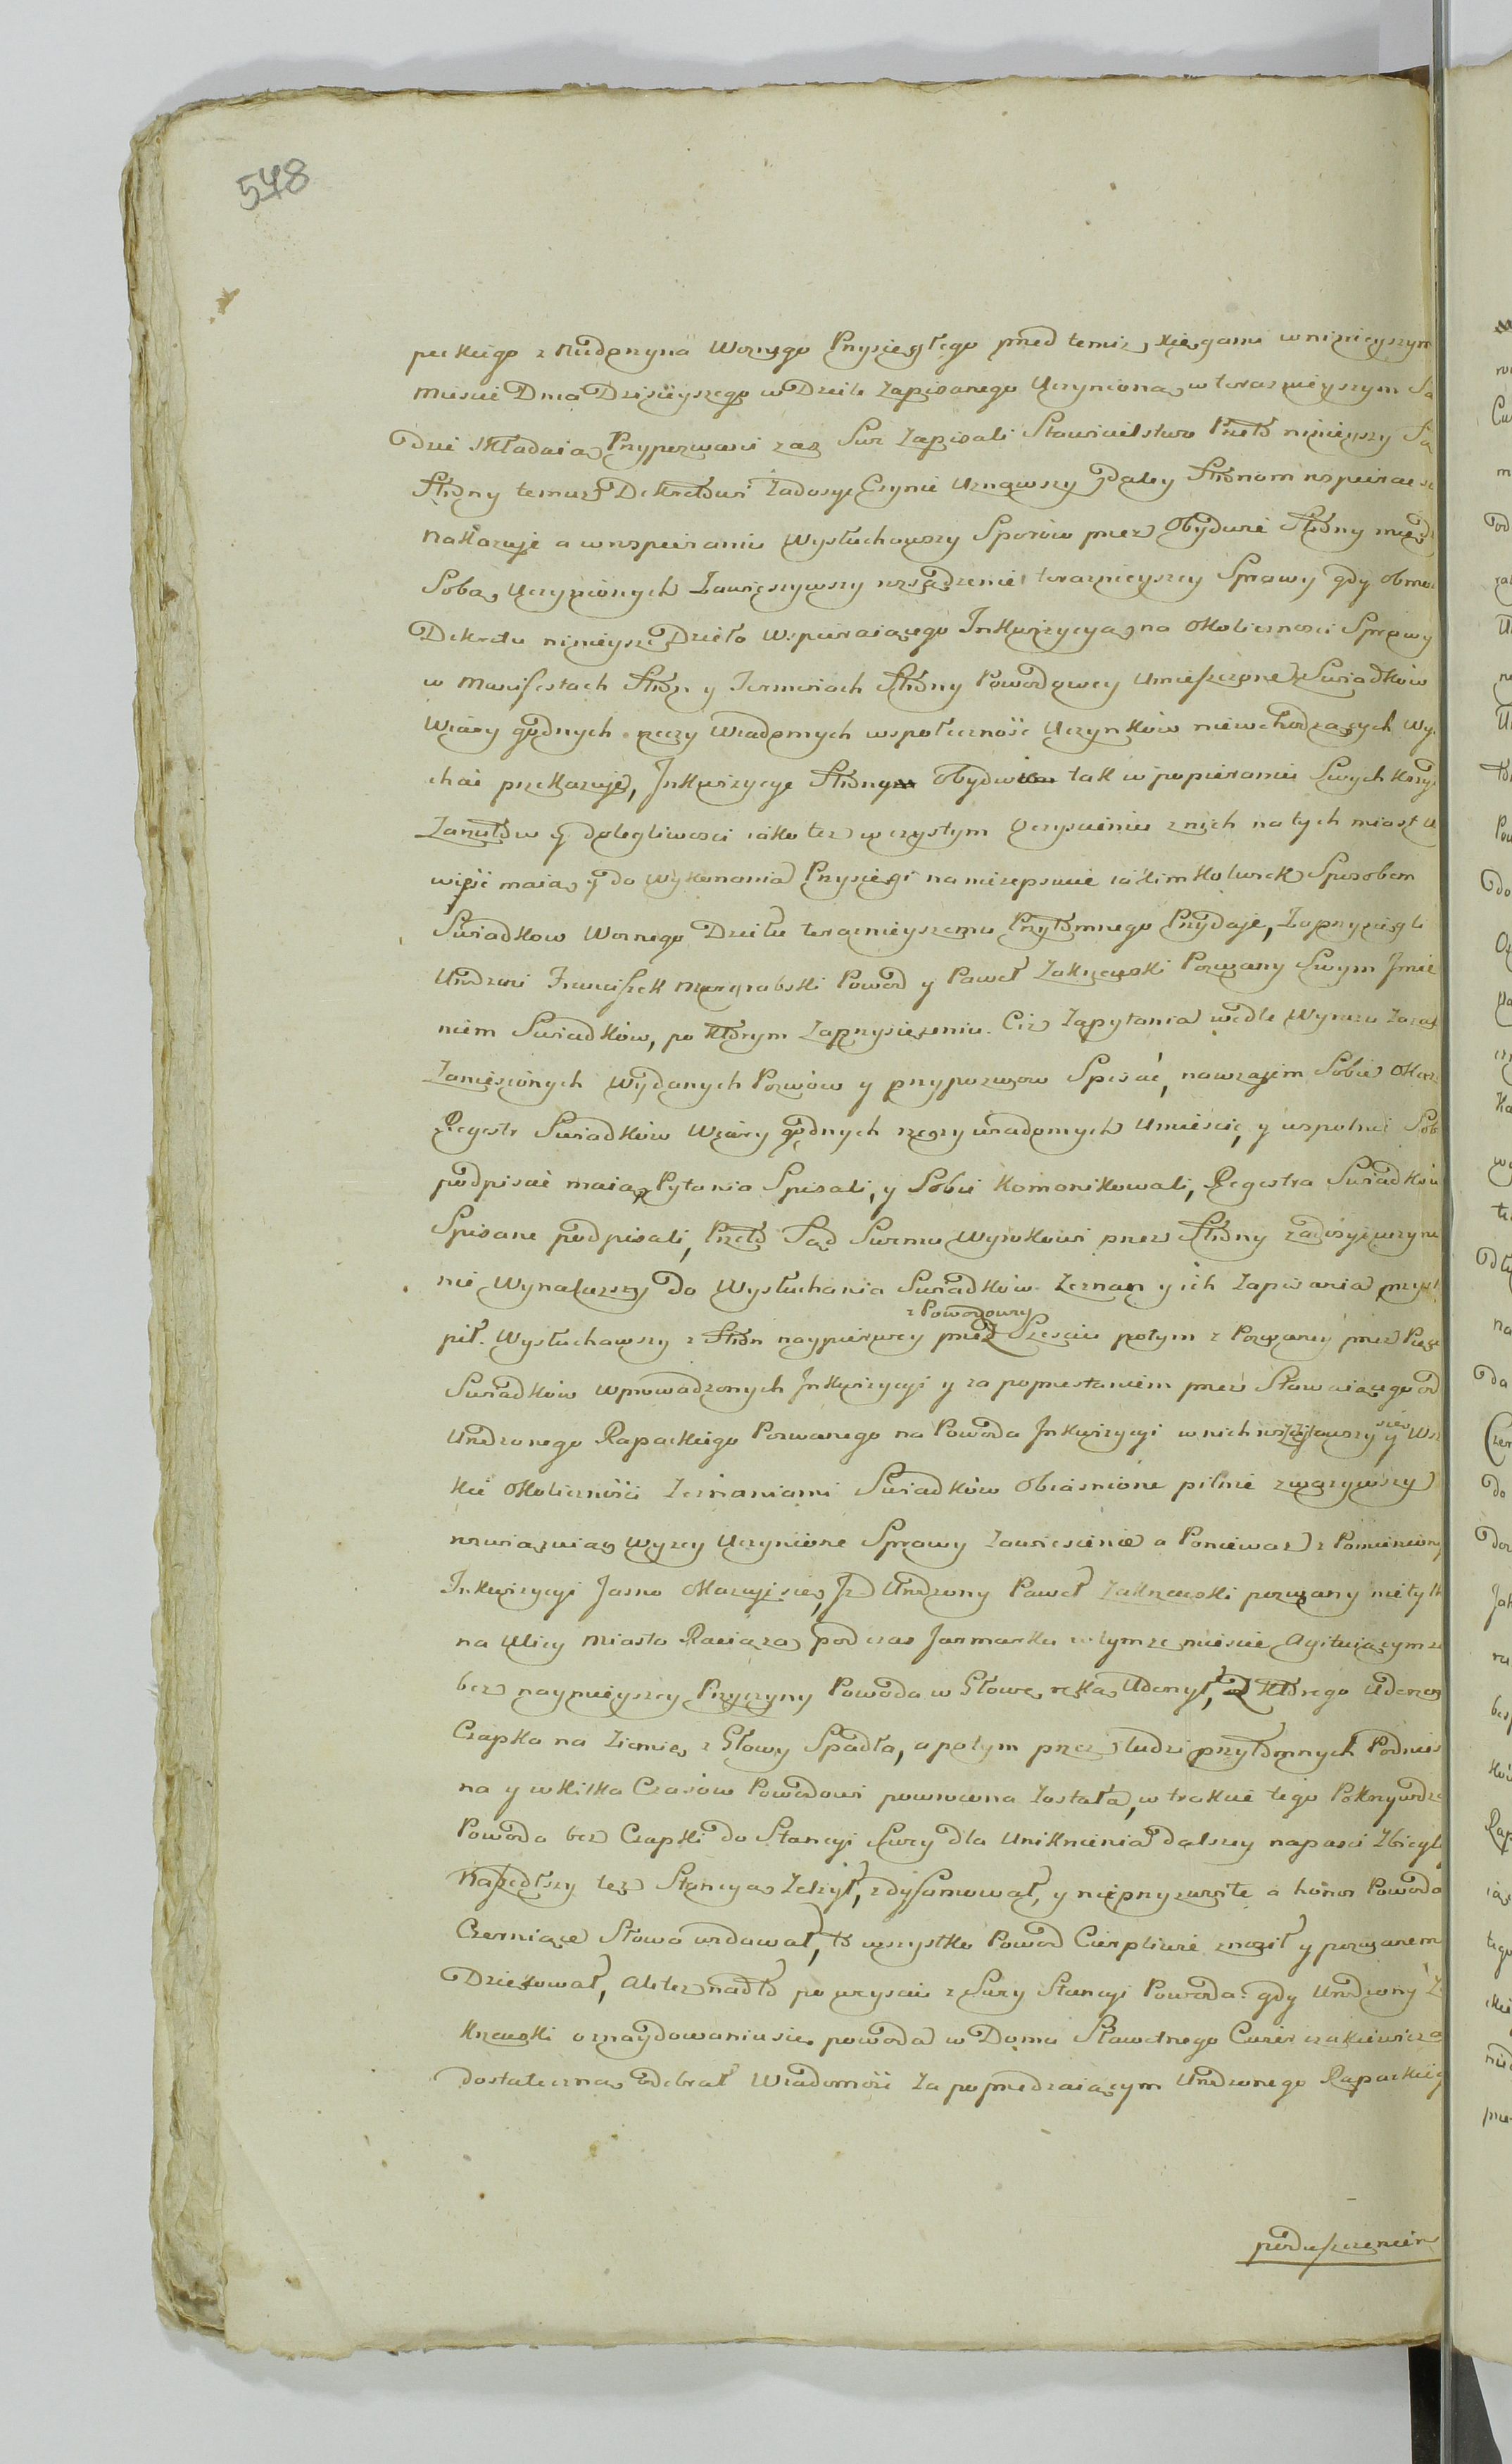 548
peckiego z Kudonyna Woznego Przysięgłego przed temiż xięgami w ninieyszym
mieście Dnia Dzisieyszego w Dziele zapisanego Uczynioną w teraznieyszym Są
dzie składaią Przypozwani zaś Swe zapisali Stawicielstwo Przeto ninieyszy Są
Strony temuż Dekretowi Zadosyc Czynić Uznawszy gdaley Stronom rospierac się
nakazuje a w rospieraniu Wysłuchawszy Sporów przez Obydwie Strony między
Sobą Uczynionych Zawiesiwszy rozsądzenie teraznieyszey Sprawy gdy obmo
Dekretu ninieysze Dzieło wspieraiącego Inkwizycyą na Okoliczności Sprawy
w Manifestach Stron y Terminach Strony Powodowey Umieszczone z Swiadków
Wiary godnych rzeczy Wiadomych wspołeczność Uczynków niewchodzących Wy
chać przekazuje, Inkwizycye Strony Obydwie tak w popieraniu Swych krzy
Zarzutów y dolegliwości iako też w czystym Oczyszczeniu z nich natychmiast
wieść maią y do Wykonania Przysięgi na nieZepsucie iakimkolwiek Sposobem
Swiadkow Woznego Dziełu teraznieyszemu Przytomnego Przydaje, Zaprzysięgli
Urodzeni Franciszek Margrabski Powod y Paweł Zakrzewski Pozwany Swym Imie
niem Swiadków, po którym Zaprzysiężeniu. Ciż Zapytania wedle Wyrazu Zaraz
Zaniesionych Wydanych Pozwów y przypozwow Spisać, nawzajem Sobie Okaz
Regestr Swiadków Wiary godnych rzeczy wiadomych Umieścić, y wspolnie Sob
podpisać maią, Pytania Spisali, y Sobie komonikowali, Regestra Swiadków
Spisane podpisali, Przeto Sąd Swemu Wyrokowi przez Strony zadosyć uczynie
nie Wynalazszy do Wysłuchania Swiadków Zeznań y ich Zapisania przyst
z Powodowey
pił. Wysłuchawszy z Stron naypierwey przez Sześciu potym z Pozwaney przez Pięc
Swiadków wprowadzonych Inkwizycyi y za poprzestaniem przez Stawaiącego od
Urodzonego Rapackiego Pozwanego na Powoda Inkwizycyi w nich rozżytawszy się y Wsz
kie Okoliczności Zeznaniami Swiadków Obiaśnione pilnie zważywszy
rozwiązuiąc Wyżey Uczynione Sprawy Zawieszenie a Ponieważ z Pomienion
Inkwizycyi Jasno Okazuje się, Iż Urodzony Paweł Zakrzewski pozwany nietylk
na Ulicy Miasta Raciąża pod czas Jarmarku w tymże mieście Agituiącym
bez naymnieyszey Przyczyny Powoda w Głowę ręką Uderzył, Z którego Uderzeń
Czapka na Ziemię z Głowy Spadła, a potym przez ludzi przytomnych Podnies
na y w kilka Czasów Powodowi powrocona Została, w trakcie tego Pokrzywdze
Powoda bez Czapki do Stancyi Swey dla Uniknienia dalszey napaści Zbiegł
Naszedłszy też Stancyą Zelżył, zdyffamował, y nieprzyzwoite a honor Powoda
Czerniące Słowa wzdawał, to wszystko Powod Cierpliwie znosił y pozwanem
Dziękował, Ale też nadto po wyściu z Swey Stancyi Powoda: gdy Urodzony Za
krzewski o znaydowaniu się powoda w Domu Sławetnego
dostateczną odebrał Wiadomość Za poprzedzaiącym Urodzonego Rapackieg
poduszczeniem